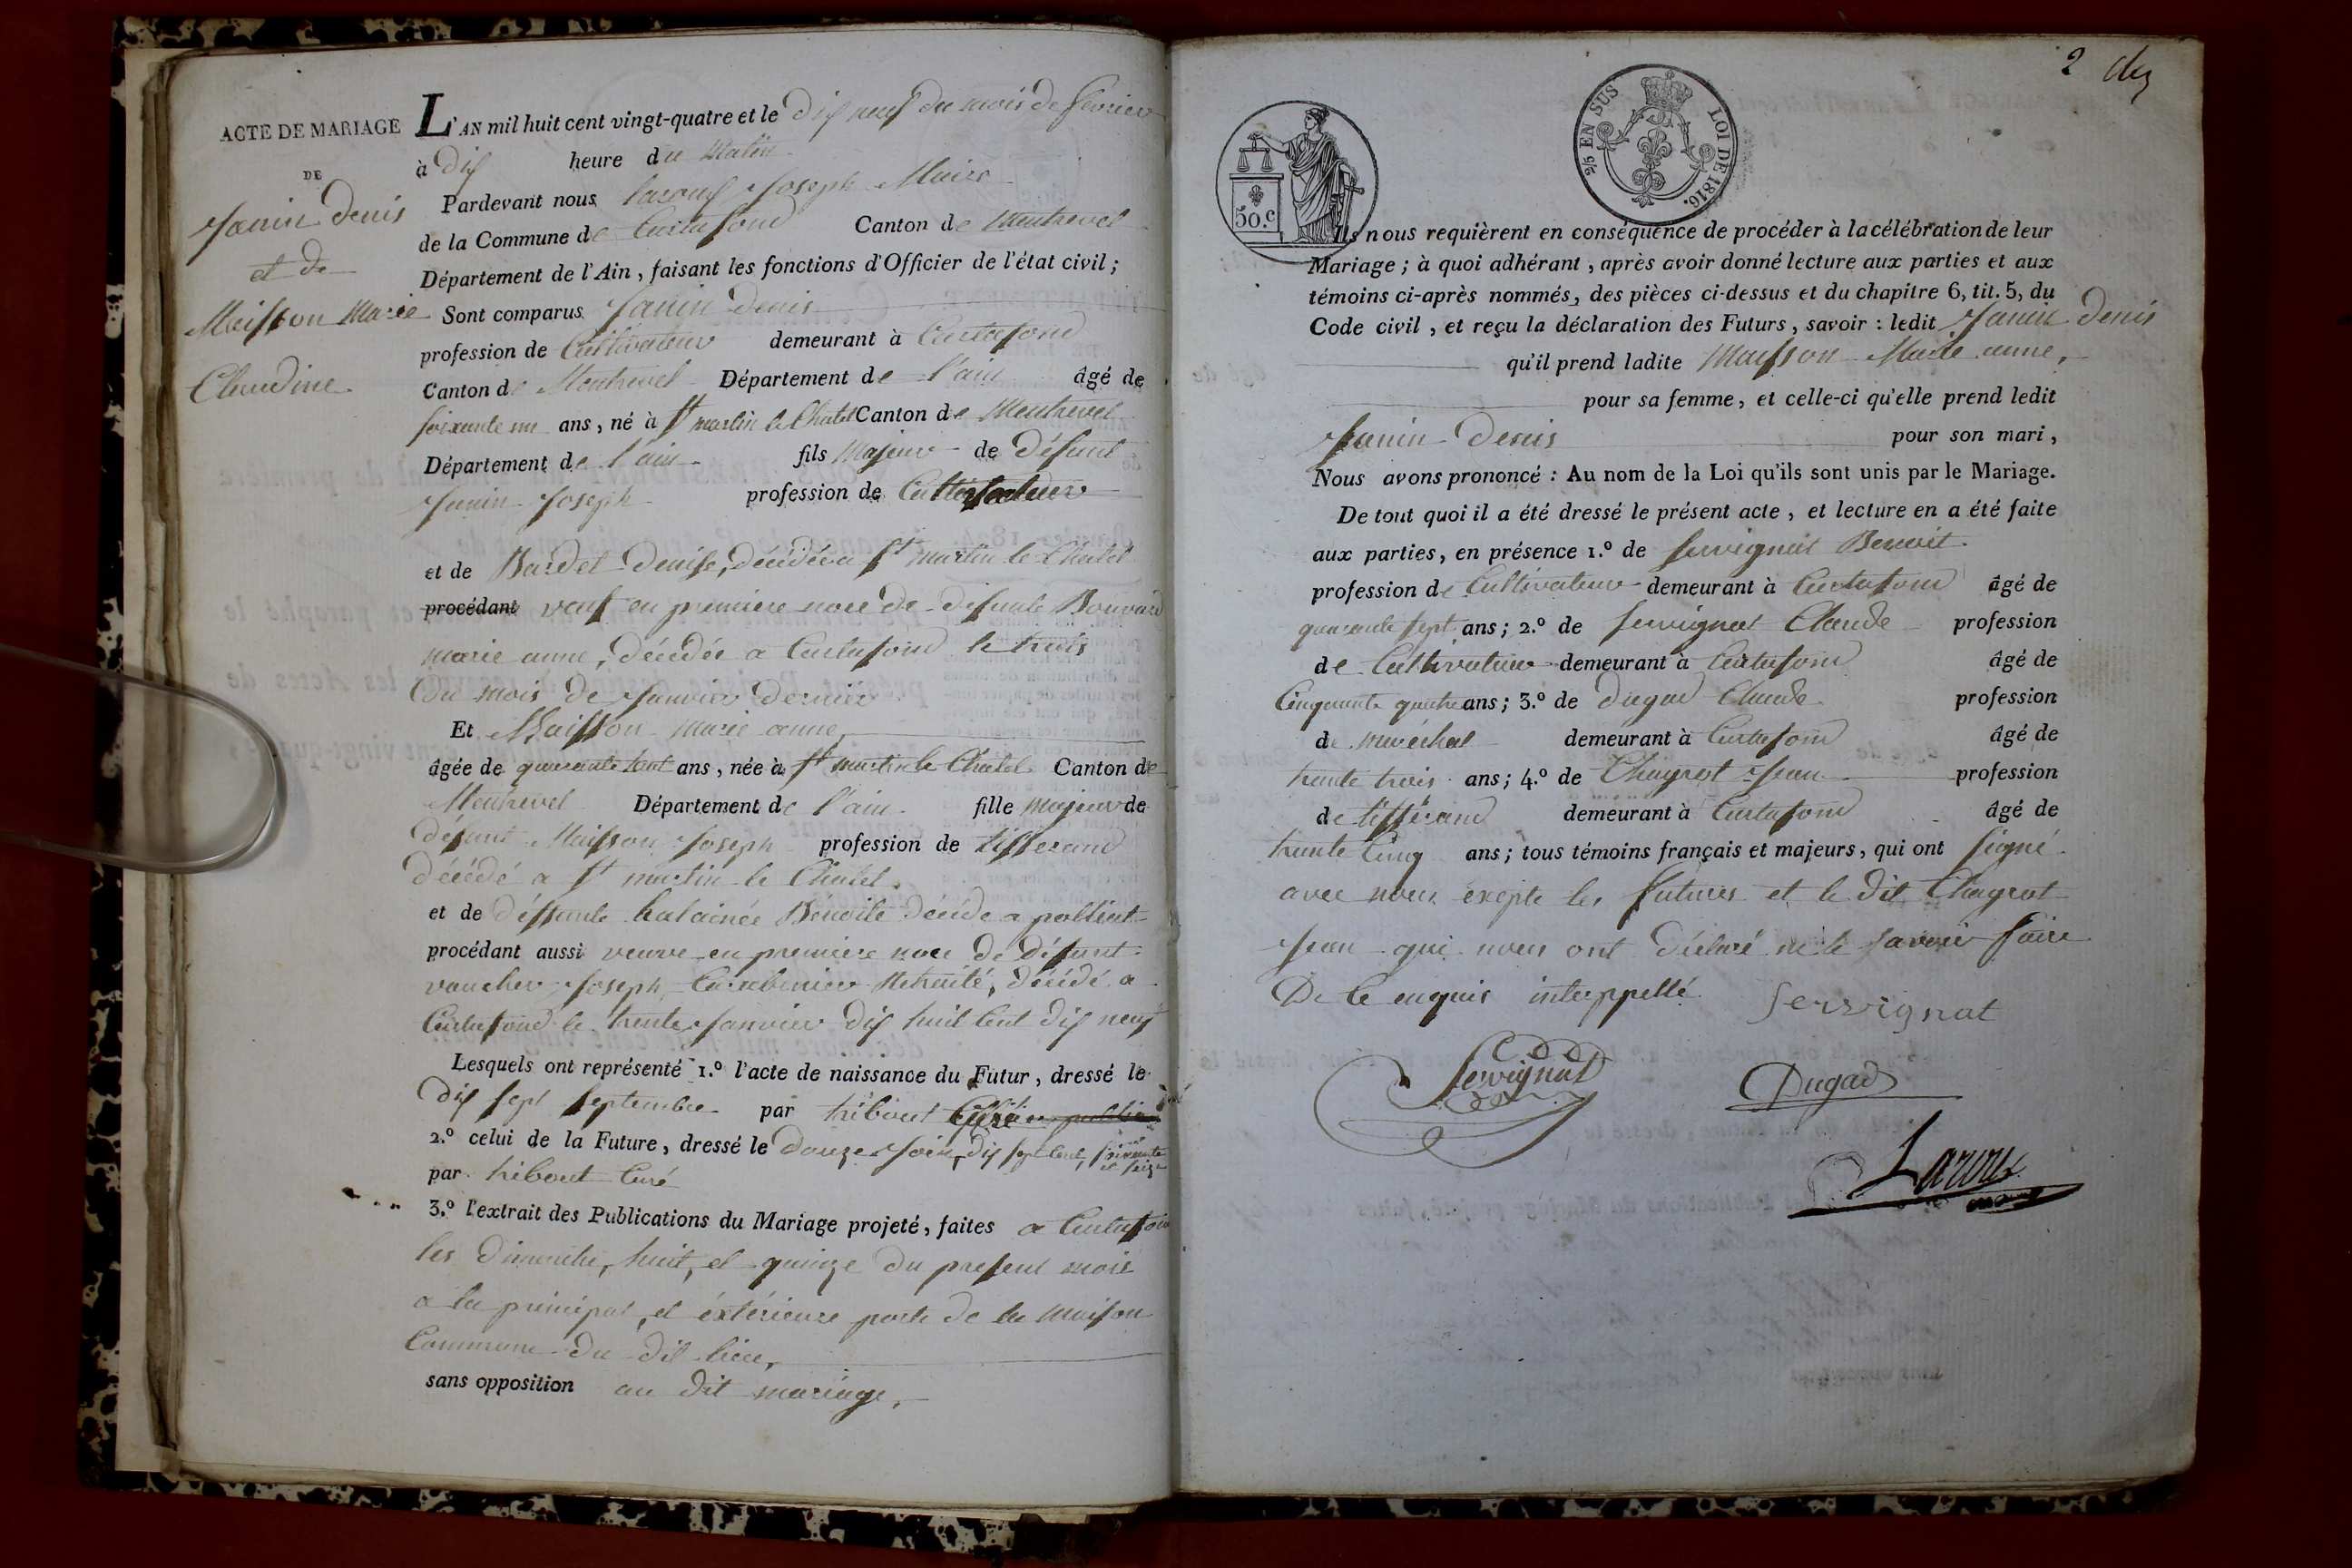 ACTE DE MARIAGE
DE
Janin denis
et de
Maisson Marie
Claudine
L'AN mil huit cent vingt-quatre et le dix neuf du mois de fevrier
à dix heure du Matin
Pardevant nous Joseph Maire
de la Commune de Curtafond Canton de Montrevel
Département de l'Ain, faisant les fonctions d'Officier de l'état civil;
Sont comparus Janin Denis
profession de Cultivateur demeurant à Curtafond
Canton de Montrevel Département de l'ain âgé de
soixante un ans, né à St martin le Chatel Canton de Montrevel
Département de l'ain fils Majeur de défunt
Janin Joseph profession de Cultivateur
et de Bardet Denise, décédée a St martin le Chatel
procédant veuf en premiere noce de defunte Bouvard
marie anne, décédée a Curtafond le trois
du mois de Janvier dernier
Et Maisson Marie anne
âgée de quarante huit ans, née à St martin le Chatel Canton de
Montrevel Département de l'ain fille majeur de
défunt Maisson Joseph profession de tisserand
décédé a St martin le Chatel.
et de déffunte Benoite décéde a polliat
procédant aussi veuve en premiere noce de défunt
vaucher Joseph, Carabinier Retraité, décédé a
Curtafond le trente Janvier dix huit Cent dix neuf
Lesquels ont représenté 1.º l'acte de naissance du Futur, dressé le
dix sept septembre par tribout Curé
2.º celui de la Future, dressé le douze Join, dix sept Cent, soixante et seize
par tribout Curé
3.º l'extrait des Publications du Mariage projeté, faites a Curtafond
les dimanche, huit, et quinze du present mois
a la principal, et éxtérieure porte de la Maison
Commune du dit lieu,
sans opposition au dit mariage,
2
50.c
2/5 EN SUS LOI DE 1816.
Ils nous requièrent en conséquence de procéder à la célébration de leur
Mariage; à quoi adhérant, après avoir donné lecture aux parties et aux
témoins ci-après nommés, des pièces ci-dessus et du chapitre 6, tit. 5, du
Code civil, et reçu la déclaration des Futurs, savoir: ledit Janin Denis
qu'il prend ladite Maisson Marie anne,
pour sa femme, et celle-ci qu'elle prend ledit
Janin Denis pour son mari,
Nous avons prononcé: Au nom de la Loi qu'ils sont unis par le Mariage.
De tout quoi il a été dressé le présent acte, et lecture en a été faite
aux parties, en présence 1.º de Servignat Benoit
profession de Cultivateur demeurant à Curtafond âgé de
quarante sept ans; 2.º de Servignat Claude profession
de Cultivateur demeurant à Curtafond âgé de
Cinquante quatre ans; 3.º de Dugad Claude profession
de maréchal demeurant à Curtafond âgé de
trente trois ans; 4.º de Chagrot Jean profession
de tisserand demeurant à Curtafond âgé de
trente Cinq ans; tous témoins français et majeurs, qui ont signé
avec nous, exepte les futures et le dit Chagrot
Jean qui nous ont déclaré ne le savoir faire
De ce enquis interppellé
Servignat
Servignat
Dugad